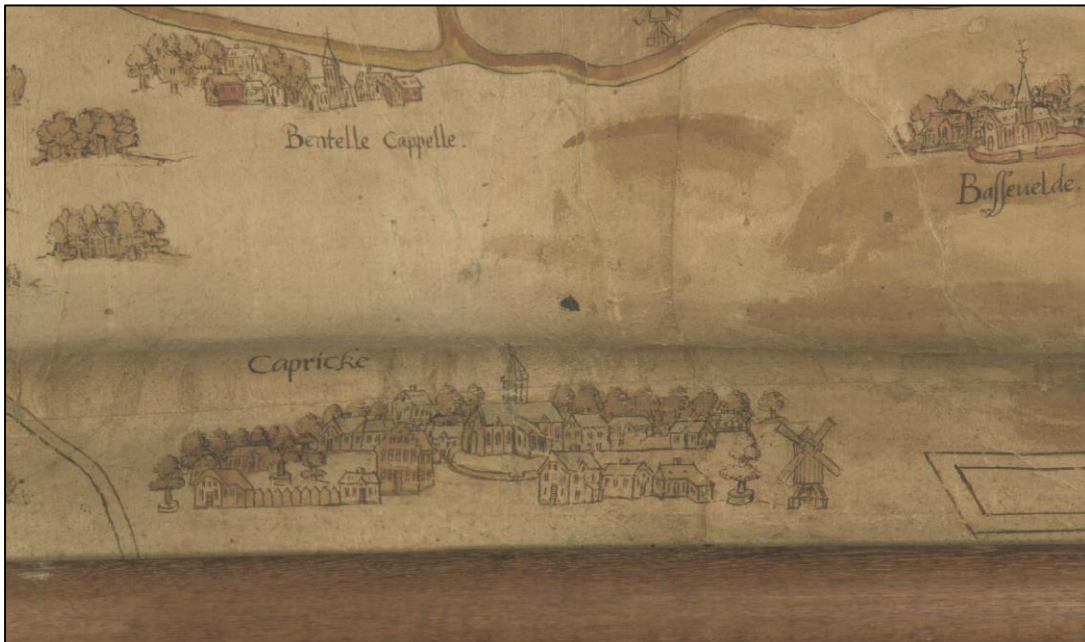 Bentelle Cappelle.
Bassevelde.
Capricke